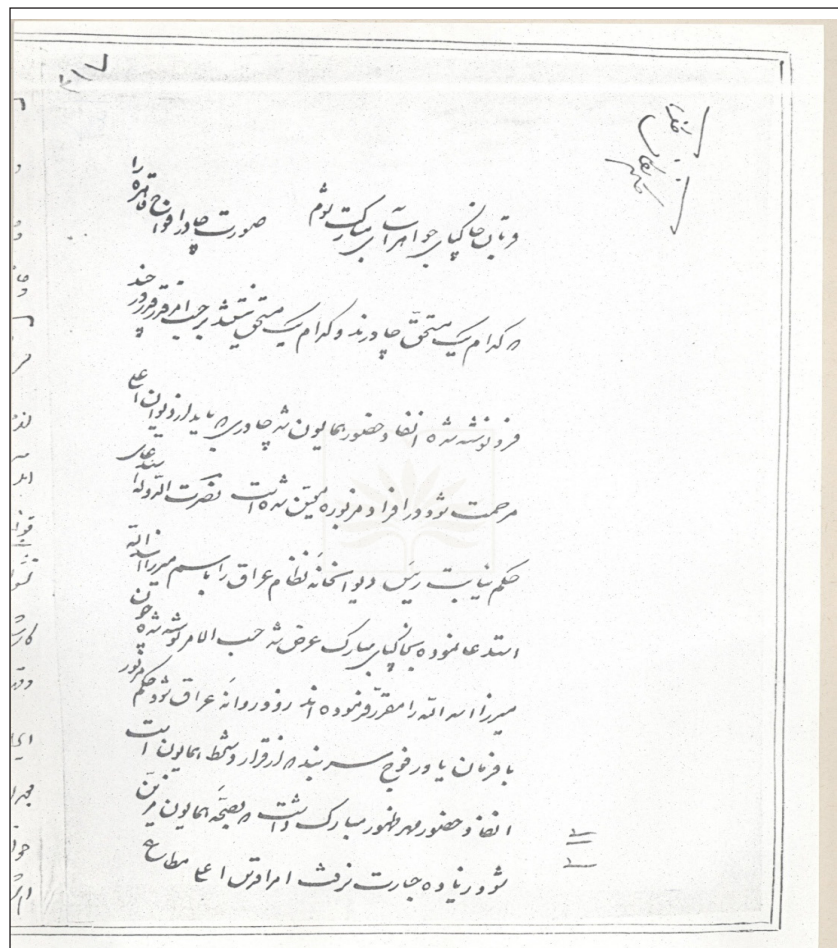 قربان خاکپای جواهرآسای مبارکت شوم صورت چادر افواج قاهره را
که کدام یک مستحق چادرند و کدام یک مستحق نیستند بر حسب امر قرر
فرد نوشته شده انفاد حضور همایون شد چادری که باید از دیوان اعلی
مرحمت شود در افراد مزبوره معین شده است نصرت الدوله
حکم نیابت رئیس دیوانخانه نظام عراق را باسم میرزا اسدالله
استدعا نموده بخاکپای مبارک عرض شد حسب الامر نوشته شده چون
میرزا اسدالله را مقرر فرموده اند زود روانه عراق شود حکم مزبور
با فرمان یاور فوج سربند که از قرار دستخط همایون است
انفاد حضور مهر ظهور مبارک داشت که بصحه همایون مزین
شود زیاده جسارت نرفت امر اقدس اعلی مطاع